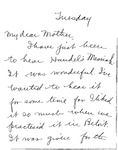 Tuesday
My dear Mother,
I have just been
to hear Handel's Messiah.
It was wonderful. I've
wanted to hear it
for some time for I liked
it so much when we
practiced it in Beloit.
It was given for the